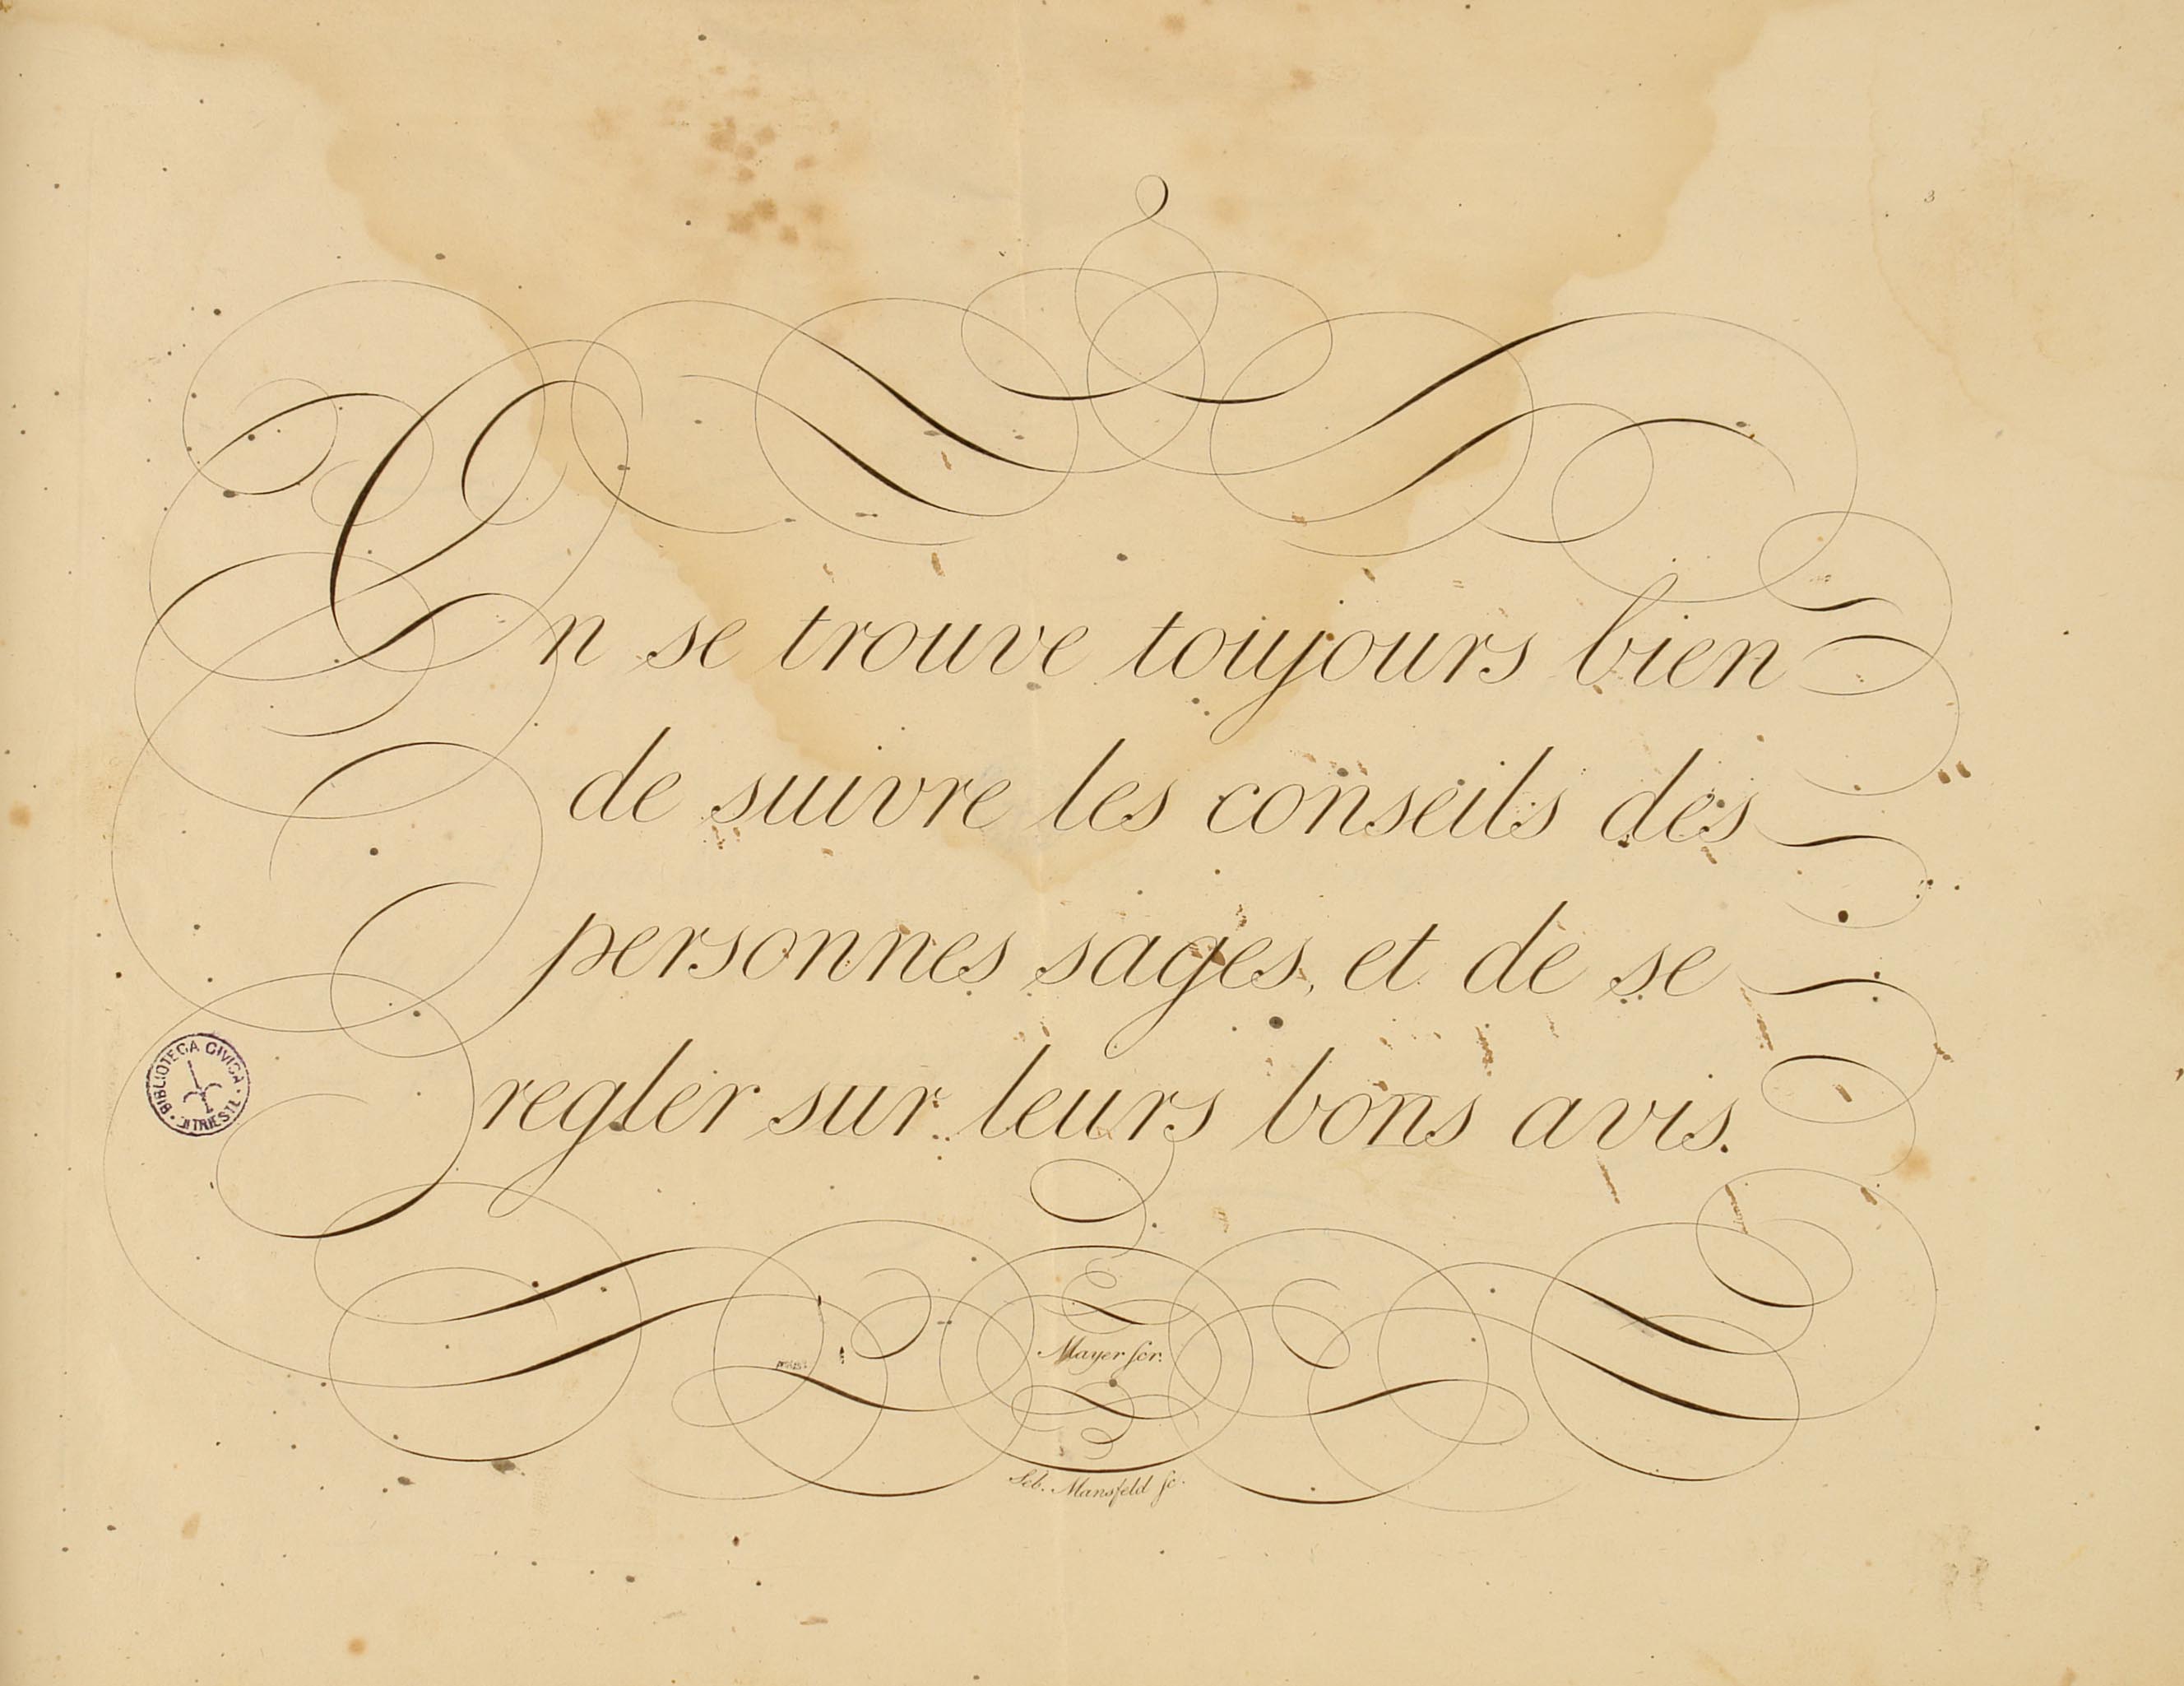 3
On se trouve toujours bien
de suivre les conseils des
personnes sages, et de se
regler sur leurs bons avis.
BIBLIOTECA CIVICA
TRIESTE
Mayer scr.
Seb. Mansfeld sc.